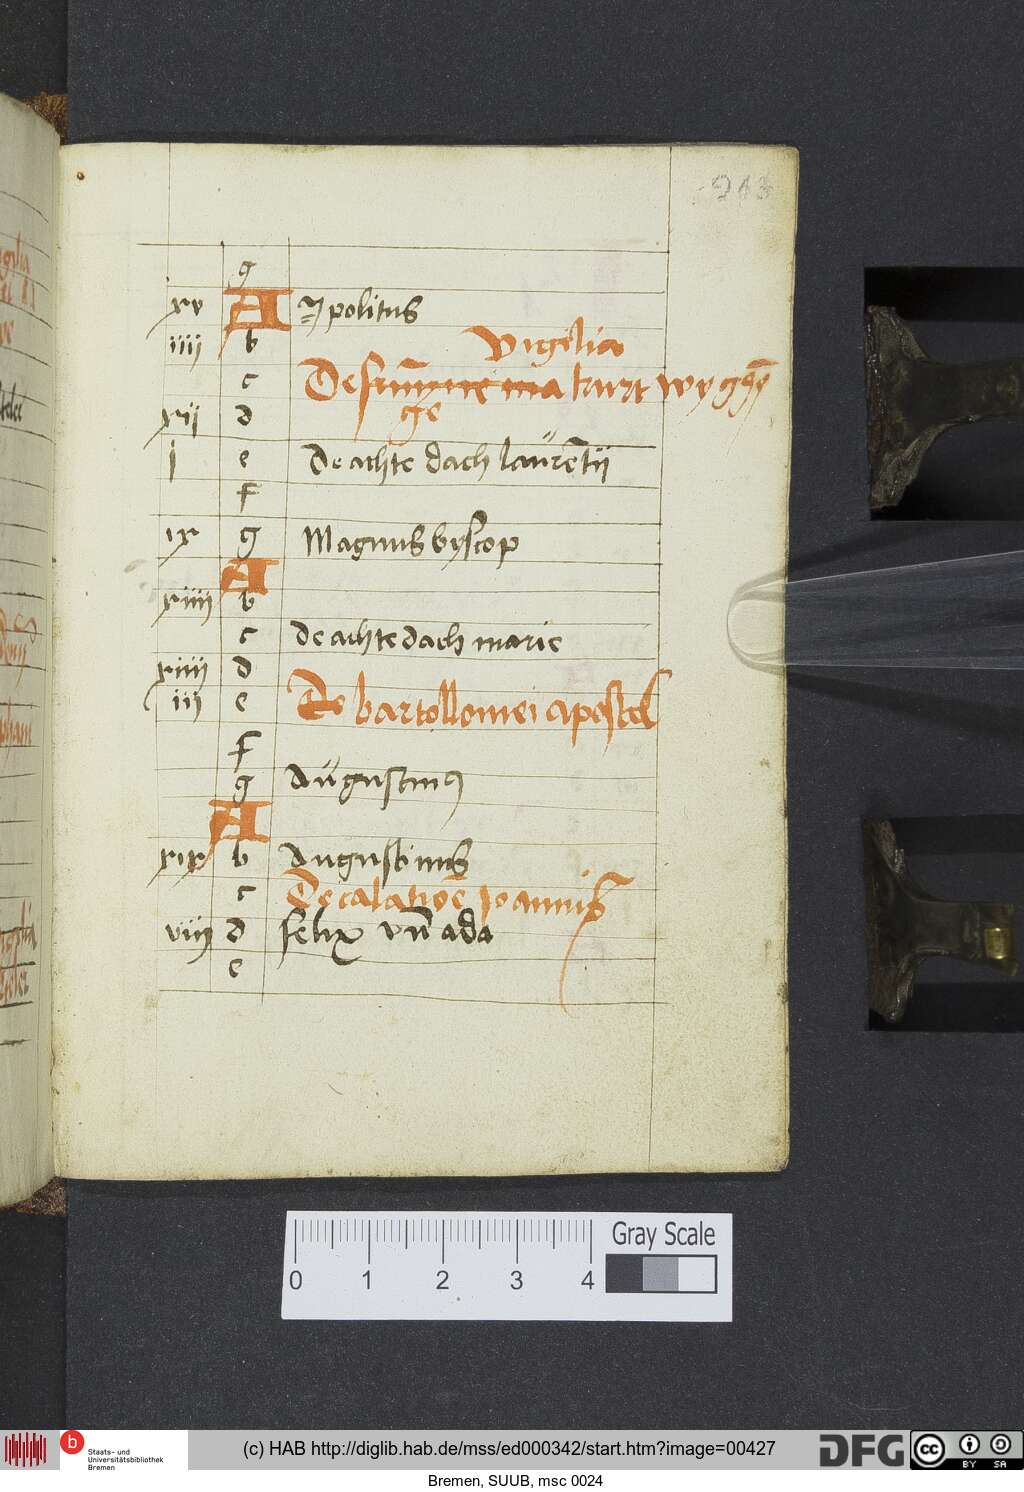 213
g
xv A Ypolitus
iiii b Vigilia
c De krut wyg
xii d ge
i e De achte dach laurētii
f
ix g Magnus byscop
A
xiiii b
c de achte dach marie
xiiii d
iii e De bartollomei apostel
f
g Augustinꝯ
A
xix b Augustinus
c Decalatioē Joannis
viii d Felix vn̄ ada
e
0 1 2 3 4
Gray Scale
b Staats- und
Universitätsbibliothek
Bremen
(c) HAB http://diglib.hab.de/mss/ed000342/start.htm?image=00427
DFG
cc BY SA
Bremen, SUUB, msc 0024